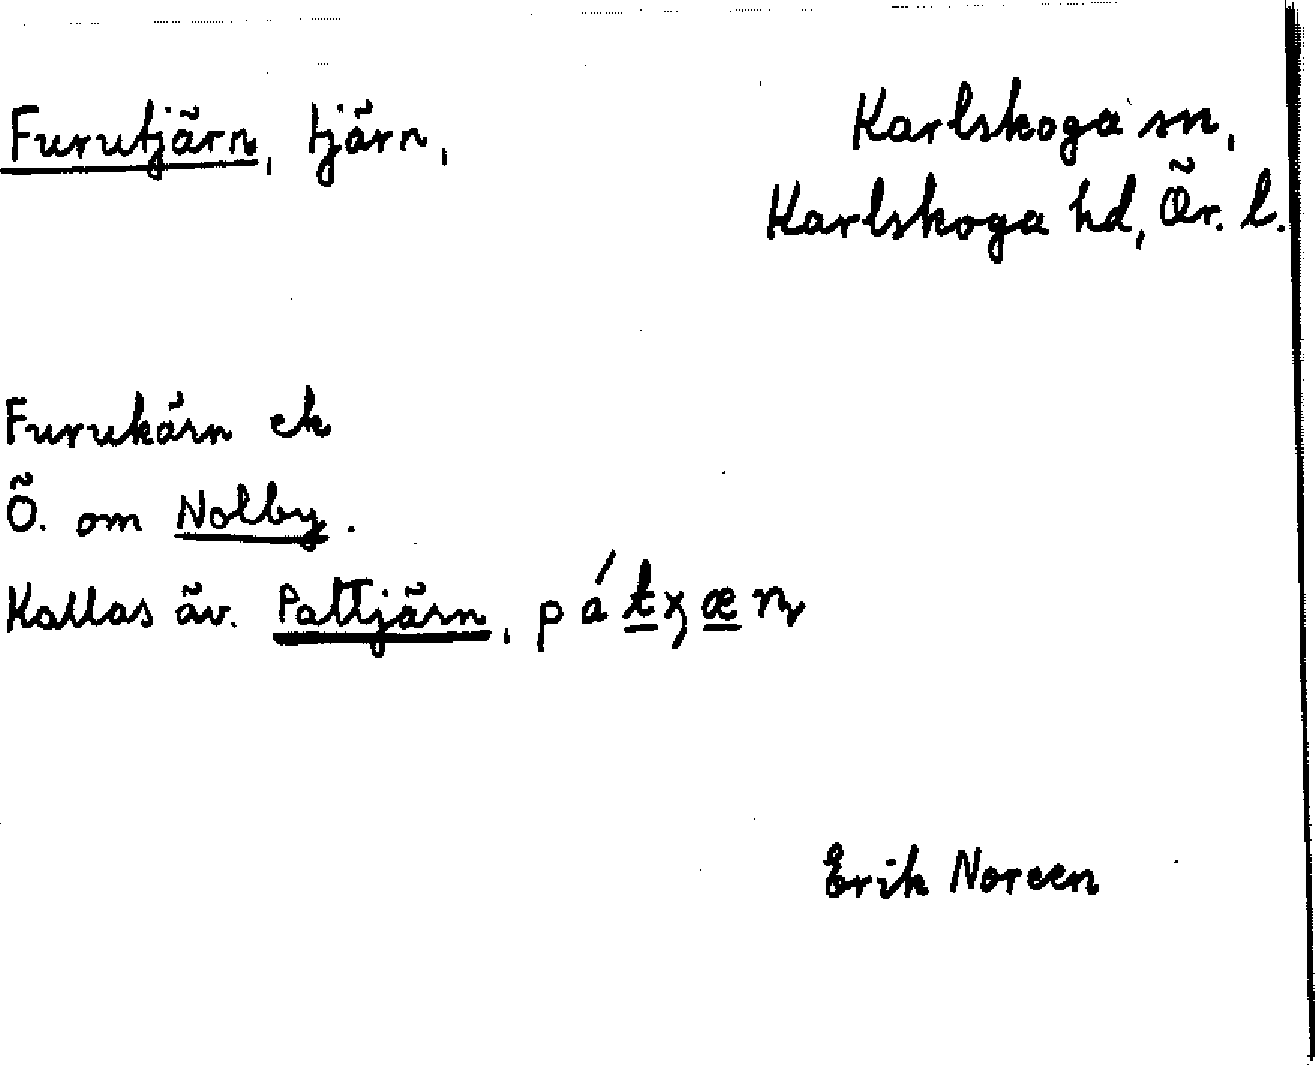 Furutjärn, tjärn,
Karlskoga sn,
Karlskoga hd, Ör. l.
Furukärn ek
Ö. om Nolby.
Kallas äv. Pattjärn,
Erik Noreen